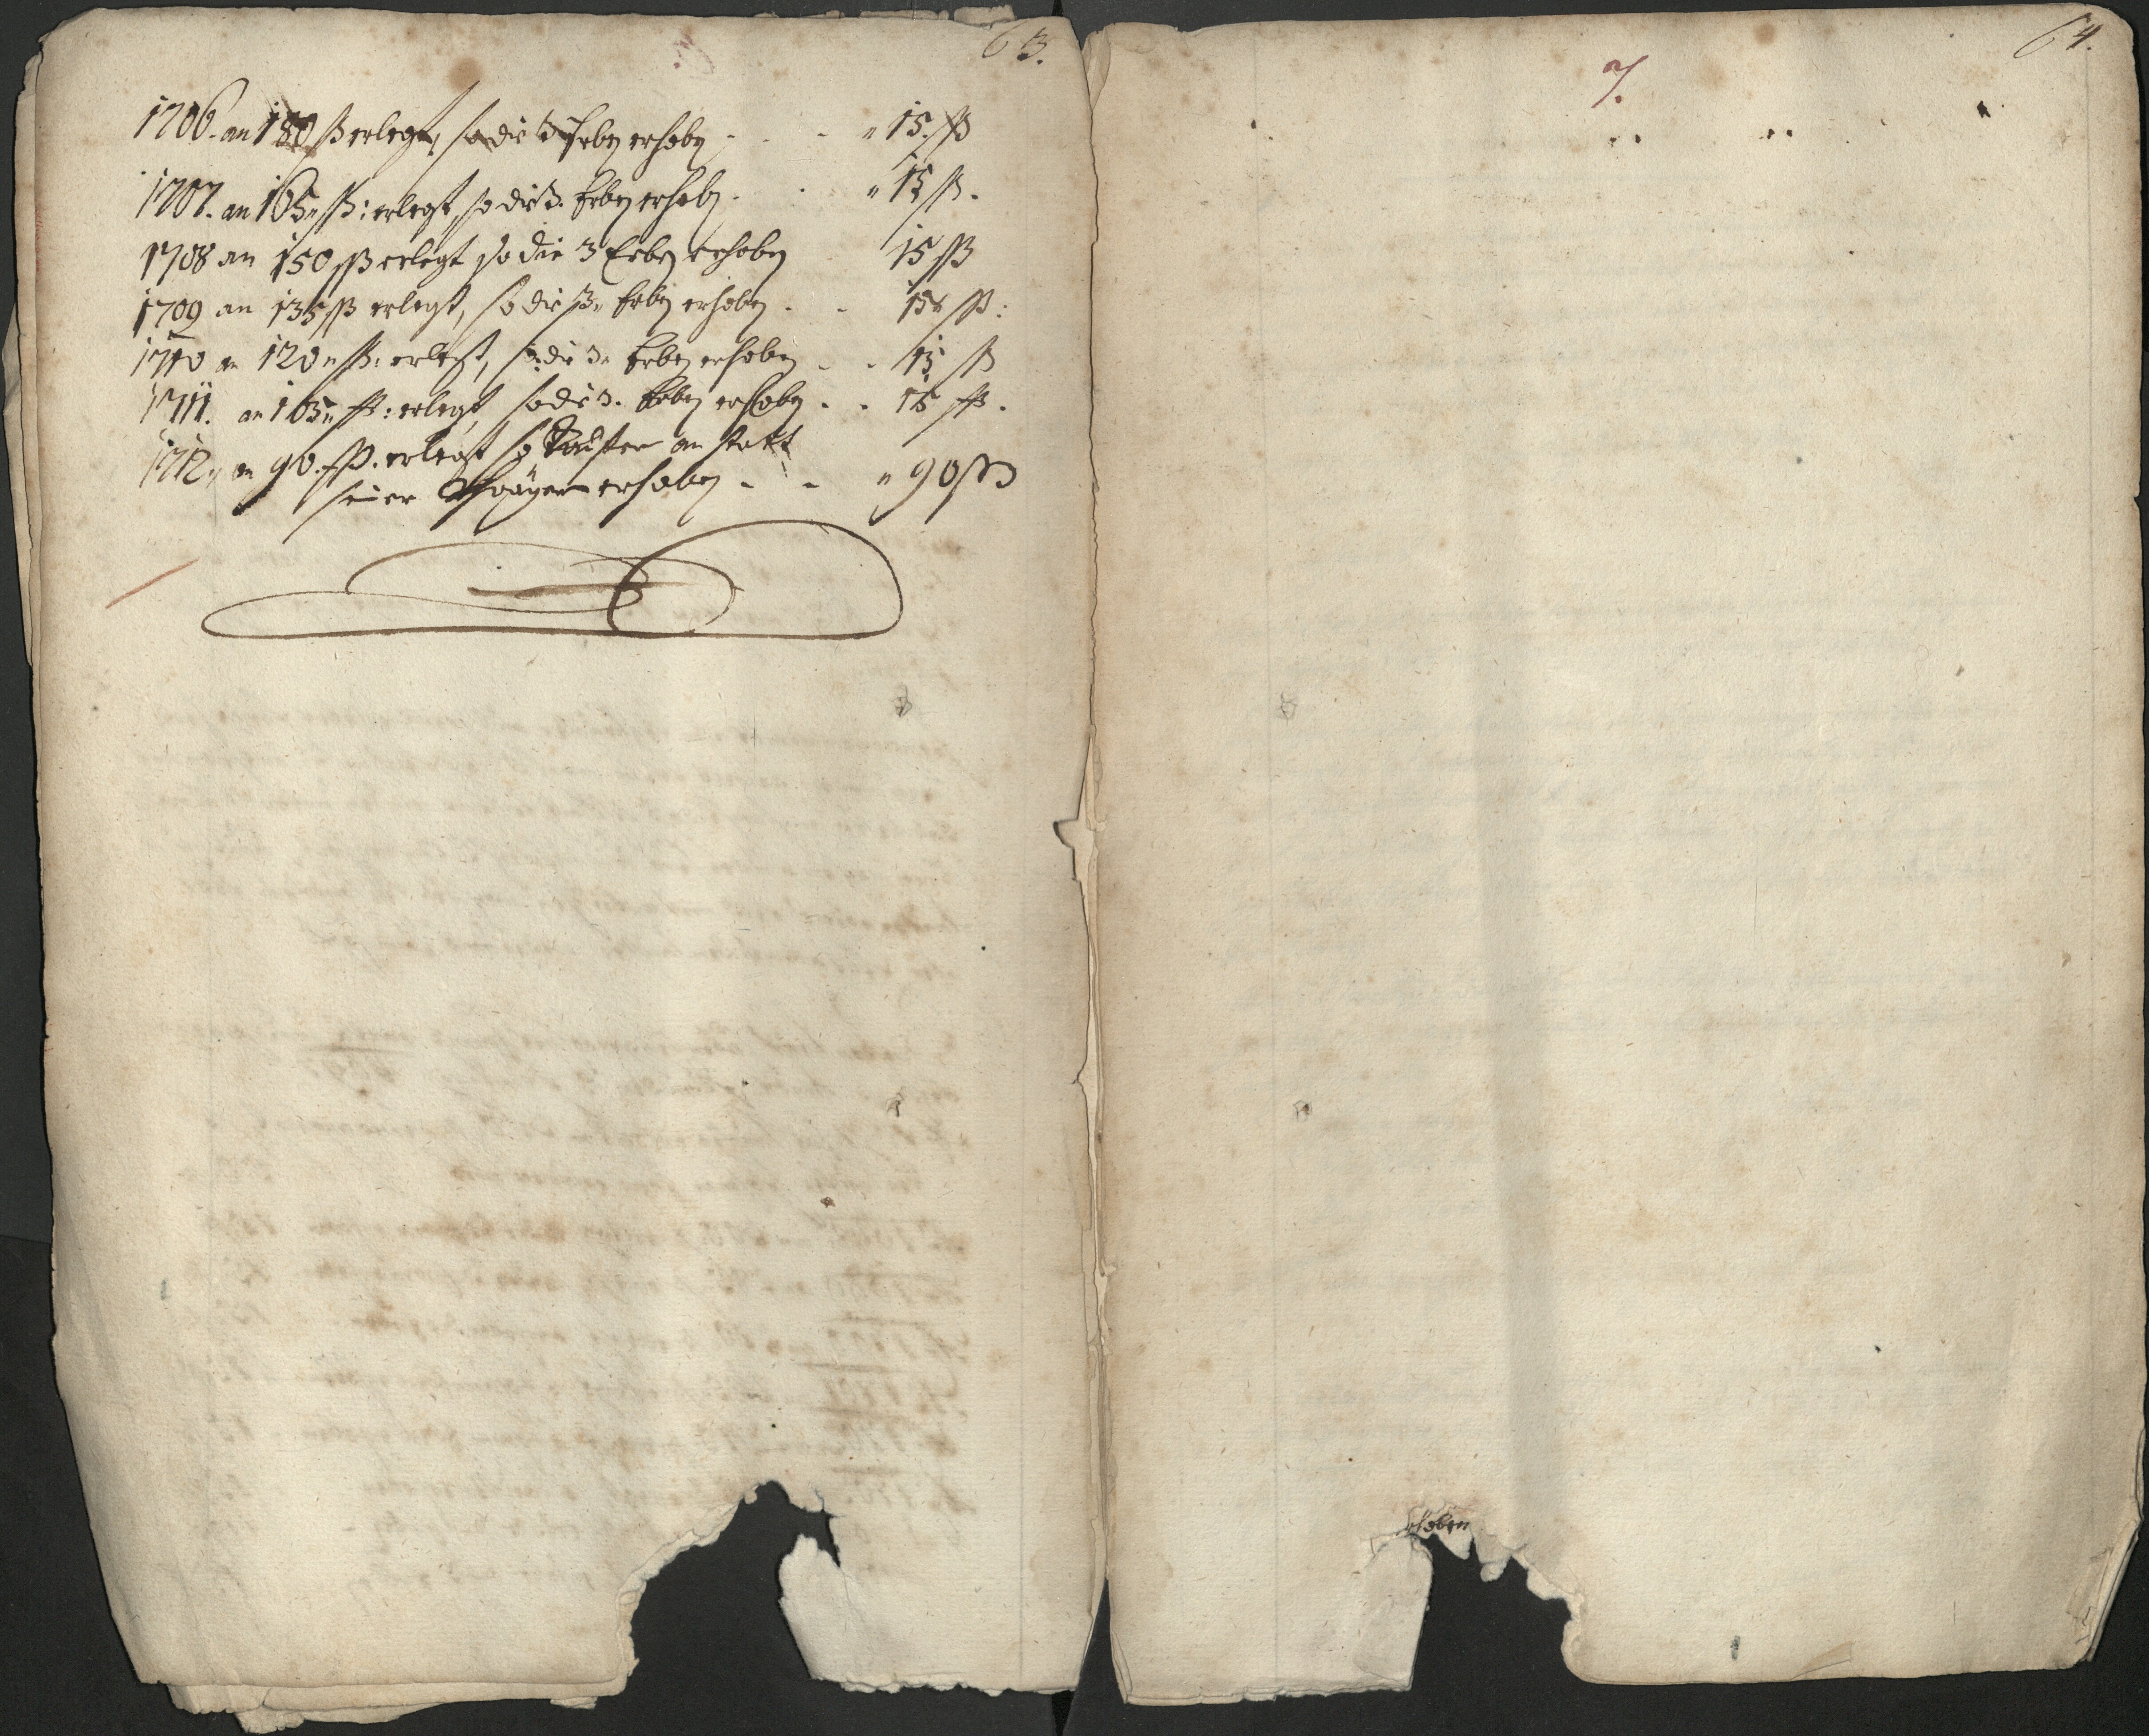 63.
1706. an 180 ß erlegt, so die 3 Erben erhoben - - " 15. ß
1707. an 165 " ß: erlegt, so die 3. Erben erhoben. " 15 ß.
1708 an 150 ß erlegt so die 3 Erben erhoben 15 ß
1709 an 135 ß erlegt, so die 3. Erben erhoben - - 15 " ß:
1710 an 120 " ß: erlegt, so die 3. Erben erhoben - - 15 ß
1711. an 105 " ß: erlegt, so die 3. Erben erhoben - - 15 ß.
1712. an 90. ß. erlegt so an statt
seiner erhoben - - " 90 ß
64.
7.
erhoben